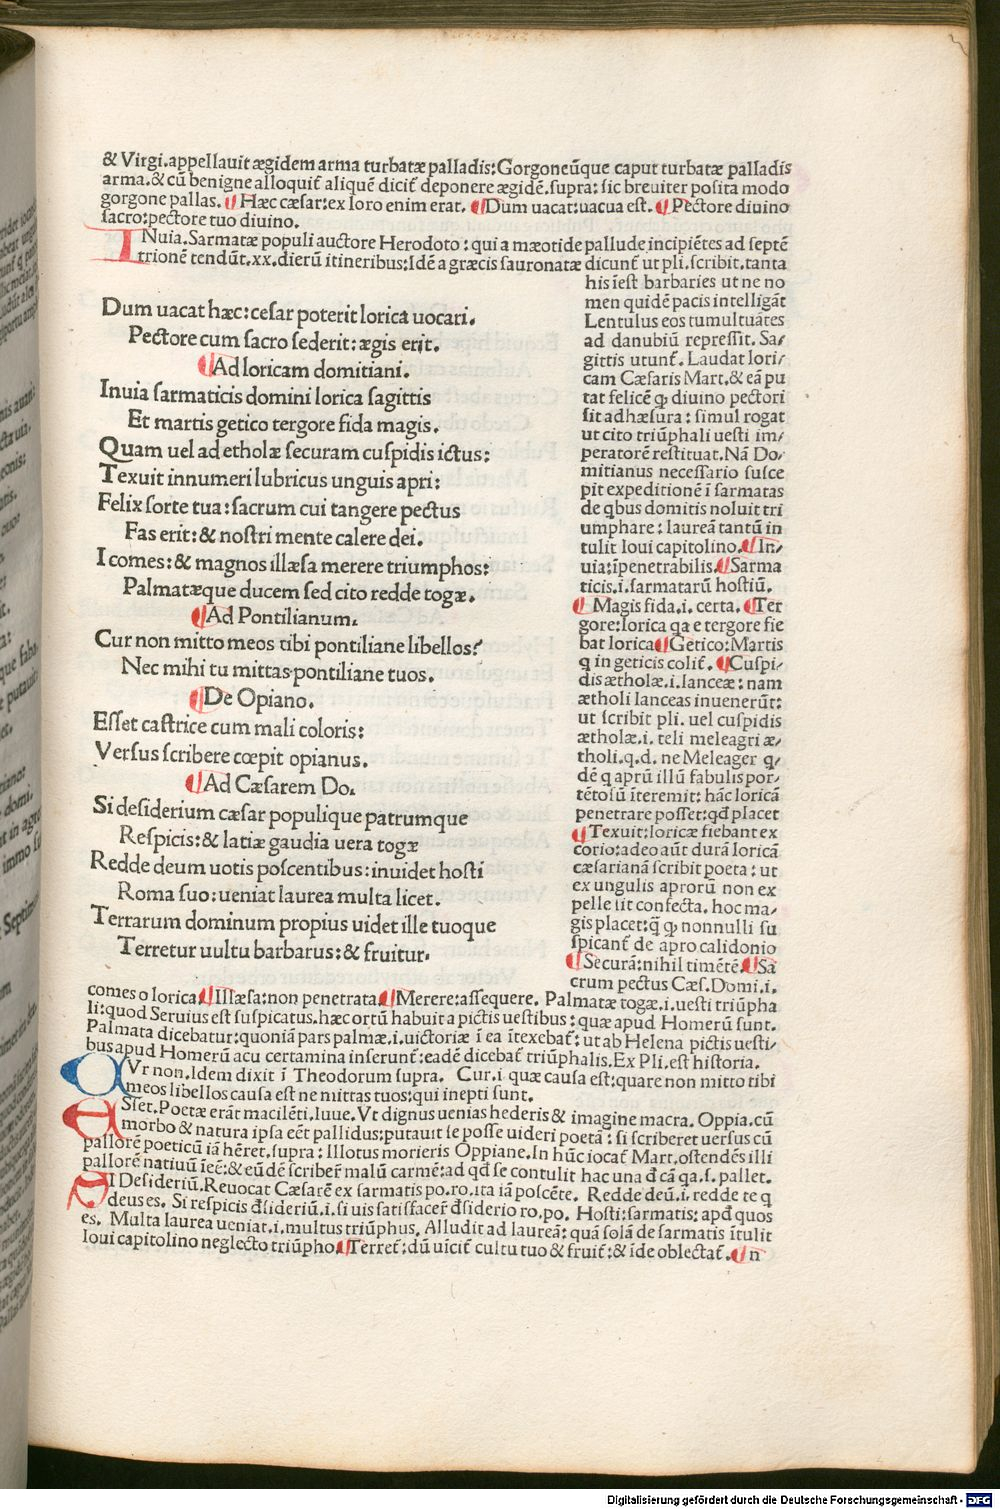 & Virgi.appellauit ægidem arma turbatæ palladis:Gorgoneūque caput turbatæ palladis
arma.& cū benigne alloquit̄ aliquē dicit̄ deponere ægidē.supra: sic breuiter posita modo
gorgone pallas. ¶ Hæc cæsar:ex loro enim erat. ¶ Dum uacat:uacua est. ¶ Pectore diuino
sacro:pectore tuo diuino.
INuia.Sarmatæ populi auctore Herodoto: qui a mæotide pallude incipiētes ad septē
trionē tendūt.xx.dierū itineribus:Idē a græcis sauronatæ dicunt̄ ut pli.scribit.tanta
his īest barbaries ut ne no
men quidē pacis intelligāt
Lentulus eos tumultuātes
ad danubiū repressit. Sa/
gittis utunt̄. Laudat lori/
cam Cæsaris Mart.& eā pu
tat felicē ꝙ diuino pectori
sit adhæsura: simul rogat
ut cito triūphali uesti im/
peratorē restituat.Nā Do/
mitianus necessario susce
pit expeditionē ī sarmatas
de qbus domitis noluit tri
umphare: laureā tantū in
tulit Ioui capitolino. ¶ In/
uia:īpenetrabilis. ¶ Sarma
ticis.i.sarmatarū hostiū.
¶ Magis fida.i. certa. ¶ Ter
gore:lorica qa e tergore fie
bat lorica ¶ Getico:Martis
q in geticis colit̄. ¶ Cuspi/
dis ætholæ.i.lanceæ: nam
ætholi lanceas inuenerūt:
ut scribit pli. uel cuspidis
ætholæ.i. teli meleagri æ/
tholi.q.d. ne Meleager q/
dē q aprū illū fabulis por/
tētosū īteremit: hāc loricā
penetrare posset:qd placet
¶ Texuit:loricæ fiebant ex
corio:adeo aūt durā loricā
cæsarianā scribit poeta: ut
ex ungulis aprorū non ex
pelle sit confecta. hoc ma/
gis placet:q̄ ꝙ nonnulli su
spicant̄ de apro calidonio
¶ Securā:nihil timētē. ¶ Sa
crum pectus Cæs.Domi.i.
Dum uacat hæc: cesar poterit lorica uocari.
Pectore cum sacro sederit: ægis erit.
¶ Ad loricam domitiani.
Inuia sarmaticis domini lorica sagittis
Et martis getico tergore fida magis.
Quam uel ad etholæ securam cuspidis ictus:
Texuit innumeri lubricus unguis apri:
Felix sorte tua: sacrum cui tangere pectus
Fas erit: & nostri mente calere dei.
I comes: & magnos illæsa merere triumphos:
Palmatæque ducem sed cito redde togæ.
¶ Ad Pontilianum.
Cur non mitto meos tibi pontiliane libellos?
Nec mihi tu mittas pontiliane tuos.
¶ De Opiano.
Esset castrice cum mali coloris:
Versus scribere cœpit opianus.
¶ Ad Cæsarem Do.
Si desiderium cæsar populique patrumque
Respicis: & latiæ gaudia uera togæ
Redde deum uotis poscentibus: inuidet hosti
Roma suo: ueniat laurea multa licet.
Terrarum dominum propius uidet ille tuoque
Terretur uultu barbarus: & fruitur.
comes o lorica. ¶ Illæsa:non penetrata. ¶ Merere:assequere. Palmatæ togæ.i.uesti triūpha
li:quod Seruius est suspicatus.hæc ortū habuit a pictis uestibus: quæ apud Homerū sunt.
Palmata dicebatur: quoniā pars palmæ.i.uictoriæ ī ea ītexebat̄: ut ab Helena pictis uesti/
bus apud Homerū acu certamina inserunt̄: eadē dicebat̄ triūphalis.Ex Pli.est historia.
CVr non.Idem dixit ī Theodorum supra. Cur.i quæ causa est:quare non mitto tibi
meos libellos causa est ne mittas tuos:qui inepti sunt.
ESset.Poetæ erāt macilēti.Iuue.Vt dignus uenias hederis & imagine macra. Oppia.cū
morbo & natura ipsa eēt pallidus:putauit se posse uideri poetā: si scriberet uersus cū
pallorē poeticū iā hēret.supra: Illotus morieris Oppiane.In hūc iocat̄ Mart.ostendēs illi
pallorē natiuū īeē:& eūdē scriber̄ malū carmē:ad qd se contulit hac una đ cā qa.s.pallet.
SI Desideriū.Reuocat Cæsarē ex sarmatis po.ro.ita iā poscēte. Redde deū.i.redde te q
deus es. Si respicis đsideriū.i.si uis satisfacer̄ đsiderio ro.po. Hosti:sarmatis: apđ quos
es. Multa laurea ueniat.i.multus triūphus. Alludit ad laureā: quā solā de sarmatis ītulit
Ioui capitolino neglecto triūpho. ¶ Terret̄:dū uīcit̄ cultu tuo & fruit̄:& īde oblectat̄. ¶ n
Digitalisierung gefördert durch die Deutsche Forschungsgemeinschaft - DFG